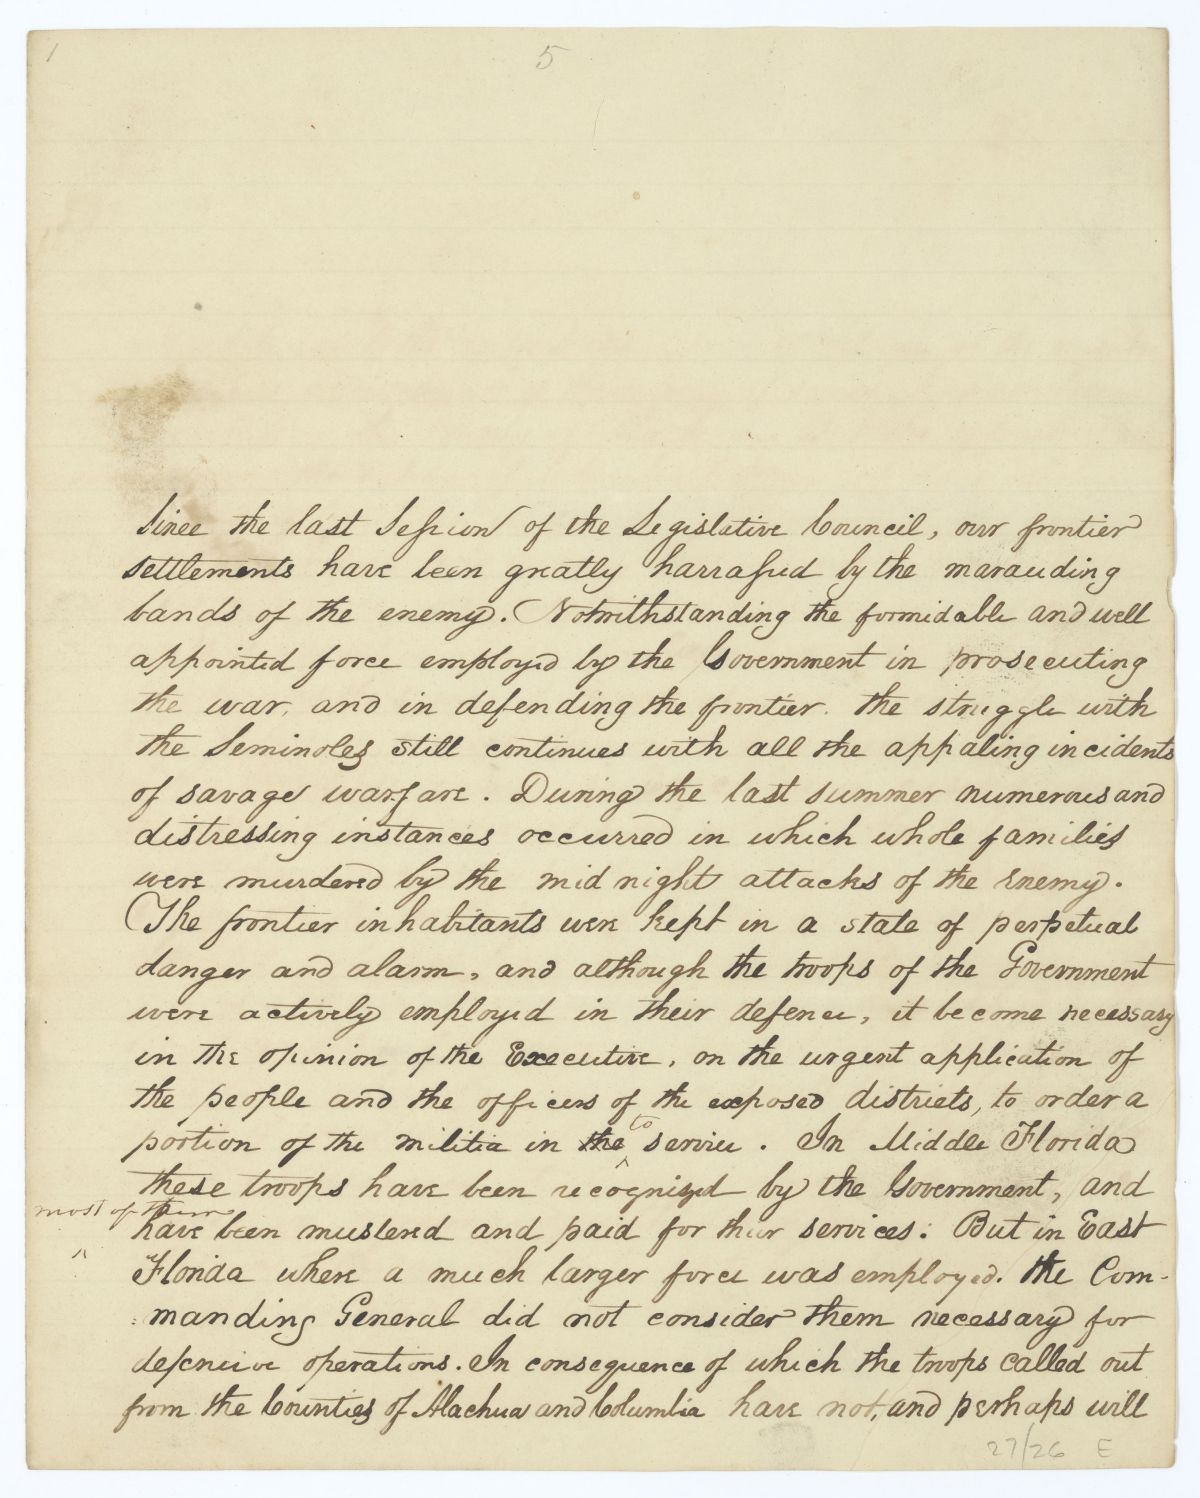 1
5
Since the last Session of the Legislative Council, our frontier
settlements have been greatly harrassed by the marauding
bands of the enemy. Notwithstanding the formidable and well
appointed force employed by the Government in prosecuting
the war, and in defending the frontier. the struggle with
the Seminoles still continues with all the appaling incidents
of savage warfare. During the last summer numerous and
distressing instances occurred in which whole families
were murdered by the mid night attacks of the Enemy.
The frontier inhabitants were kept in a state of perpetual
danger and alarm, and although the troops of the Government
were actively employed in their defence, it become necessary
in the opinion of the Executive, on the urgent application of
the people and the officers of the exposed districts, to order a
portion of the militia in the to service. In Middle Florida
these troops have been recognized by the Government, and
most of them
have been mustered and paid for their services: But in East
Florida where a much larger force was employed. the Com-
manding General did not consider them necessary for
defensive operations. In consequence of which the troops called out
from the Counties of Alachua and Columbia have not, and perhaps will
27/26 E